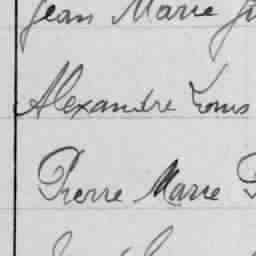 Jean Marie
Alexandre Louis
Pierre Marie